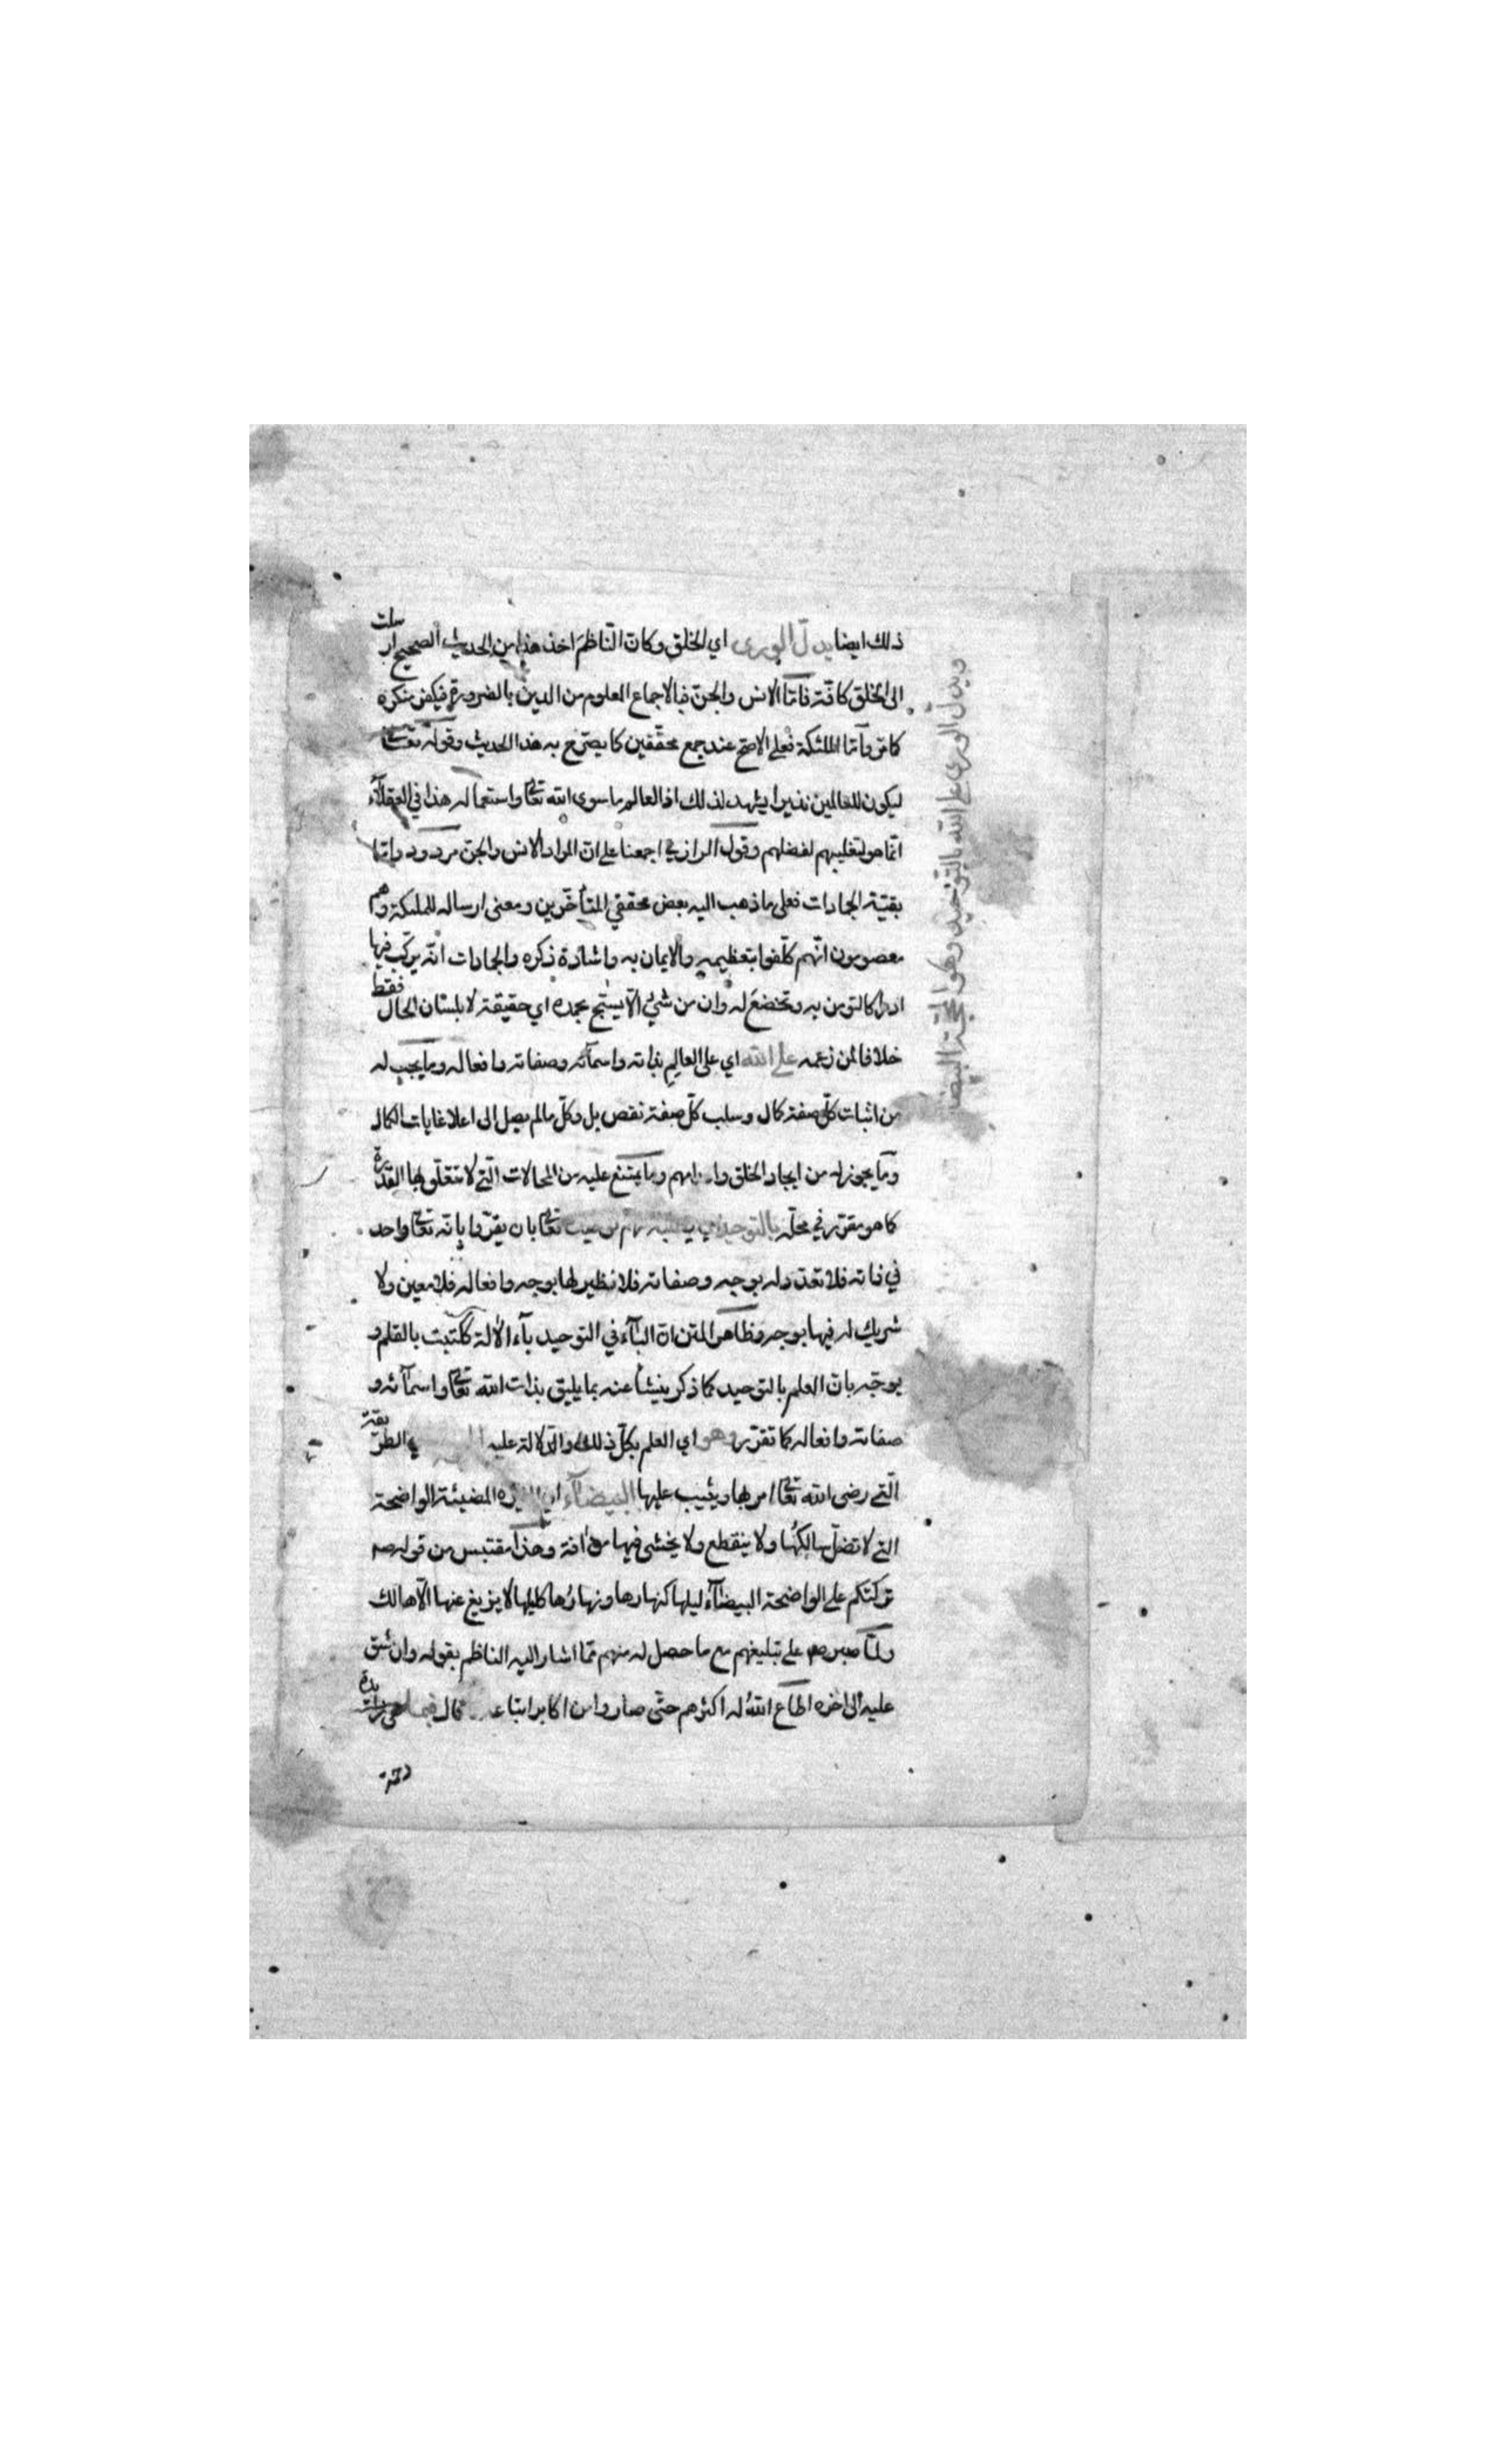 ذلك ايضا يدلّ الورى اي الخلق وكانّ النّاظم اخذ هذا من الحديث الصحيح ارسلت
الى الخلق كافّة فامّا الانس والجنّ فبالاجماع المعلوم من الدين بالضرورة فيكفر منكره
كما مر وامّا الملئكة فعلى الاصحّ عند جمع محقّقين كما يصرّح به هذا الحديث وقوله تعالى
ليكون للعالمين نذيرا يشهد لذلك اذ العالم ما سوى الله تعالى واستعماله هذا في العقلاء
انّما هو لتغليبهم لفضلهم وقول الرازي اجمعنا على انّ المراد الانس والجن مردود وامّا
بقيّة الجمادات فعلى ما ذهب اليه بعض محققي المتأخّرين ومعنى ارساله للملئكة وهم
معصومون انّهم كلّفوا بتعظيمه والايمان به واشادة ذكره والجمادات انّه يركّب فيها
ادراكا لتومن به وتخضع له وان من شيء الّا يسبّح بحمده اي حقيقة لا بلسان الحال فقط
خلافا لمن زعمه على الله اي على العالم بذاته واسمائه وصفاته وافعاله وما يجب له
من اثبات كلّ صفة كمال وسلب كلّ صفة نقص بل وكلّ مالم يصل الى اعلا غايات الكمال
وما يجوز له من ايجاد الخلق وما يمتنع عليه من المحالات الّتي لا تتعلّق بها القدرة
كما هو مقرّر في محلّه بالتوحيد تعالى بان يقرّوا بانّه تعالى واحد
في ذاته فلا تعدّد له بوجه وصفاته فلا نظير لها بوجه وافعاله فلا معين ولا
شريك له فيها بوجه وظاهر المتن انّ الباء في التوحيد باء الالة ككتبت بالقلم و
يوجّه بانّ العلم بالتوحيد كما ذكر ينشأ عنه بما يليق بذات الله تعالى واسمائه و
صفاته وافعاله كما تقرّر وهو اي العلم بكلّ ذلك والدّلالة عليه الطريقة
الّتي رضى الله تعالى امر بها ويثيب عليها البيضاء المضيئة الواضحة
التي لا تضلّ سالكها ولا ينقطع ولا يخشى فيها من افة وهذا مقتبس من قوله صم
تركتكم على الواضحة البيضاء ليلها كنهارها ونهارها كليلها لا يزيغ عنها الّا هالك
ولمّا صبر صم على تبليغهم مع ما حصل له منهم ممّا اشار اليه الناظم بقوله وان شق
عليه الى اخره اطاع الله له اكثرهم حتّى صاروا من اكابر اتباعه قال فبما
رحمة
ويدلّ الورى على الله بالتوحيد وهو المحجّة البيضا